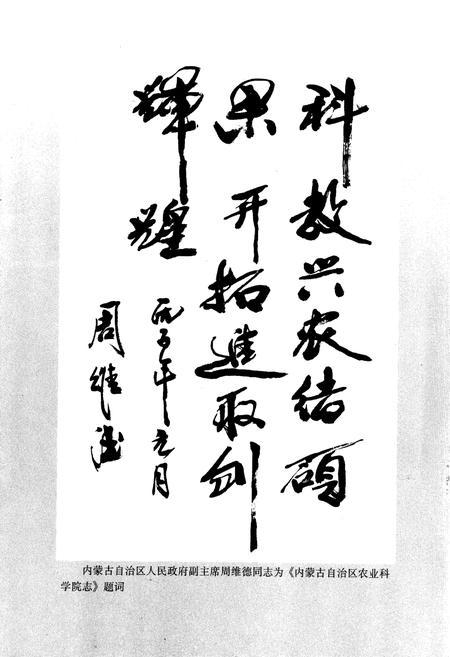 科教兴农结硕
果开拓進取创
輝煌
丙子年元月
周维德
内蒙古自治区人民政府副主席周维德同志为《内蒙古自治区农业科
学院志》题词